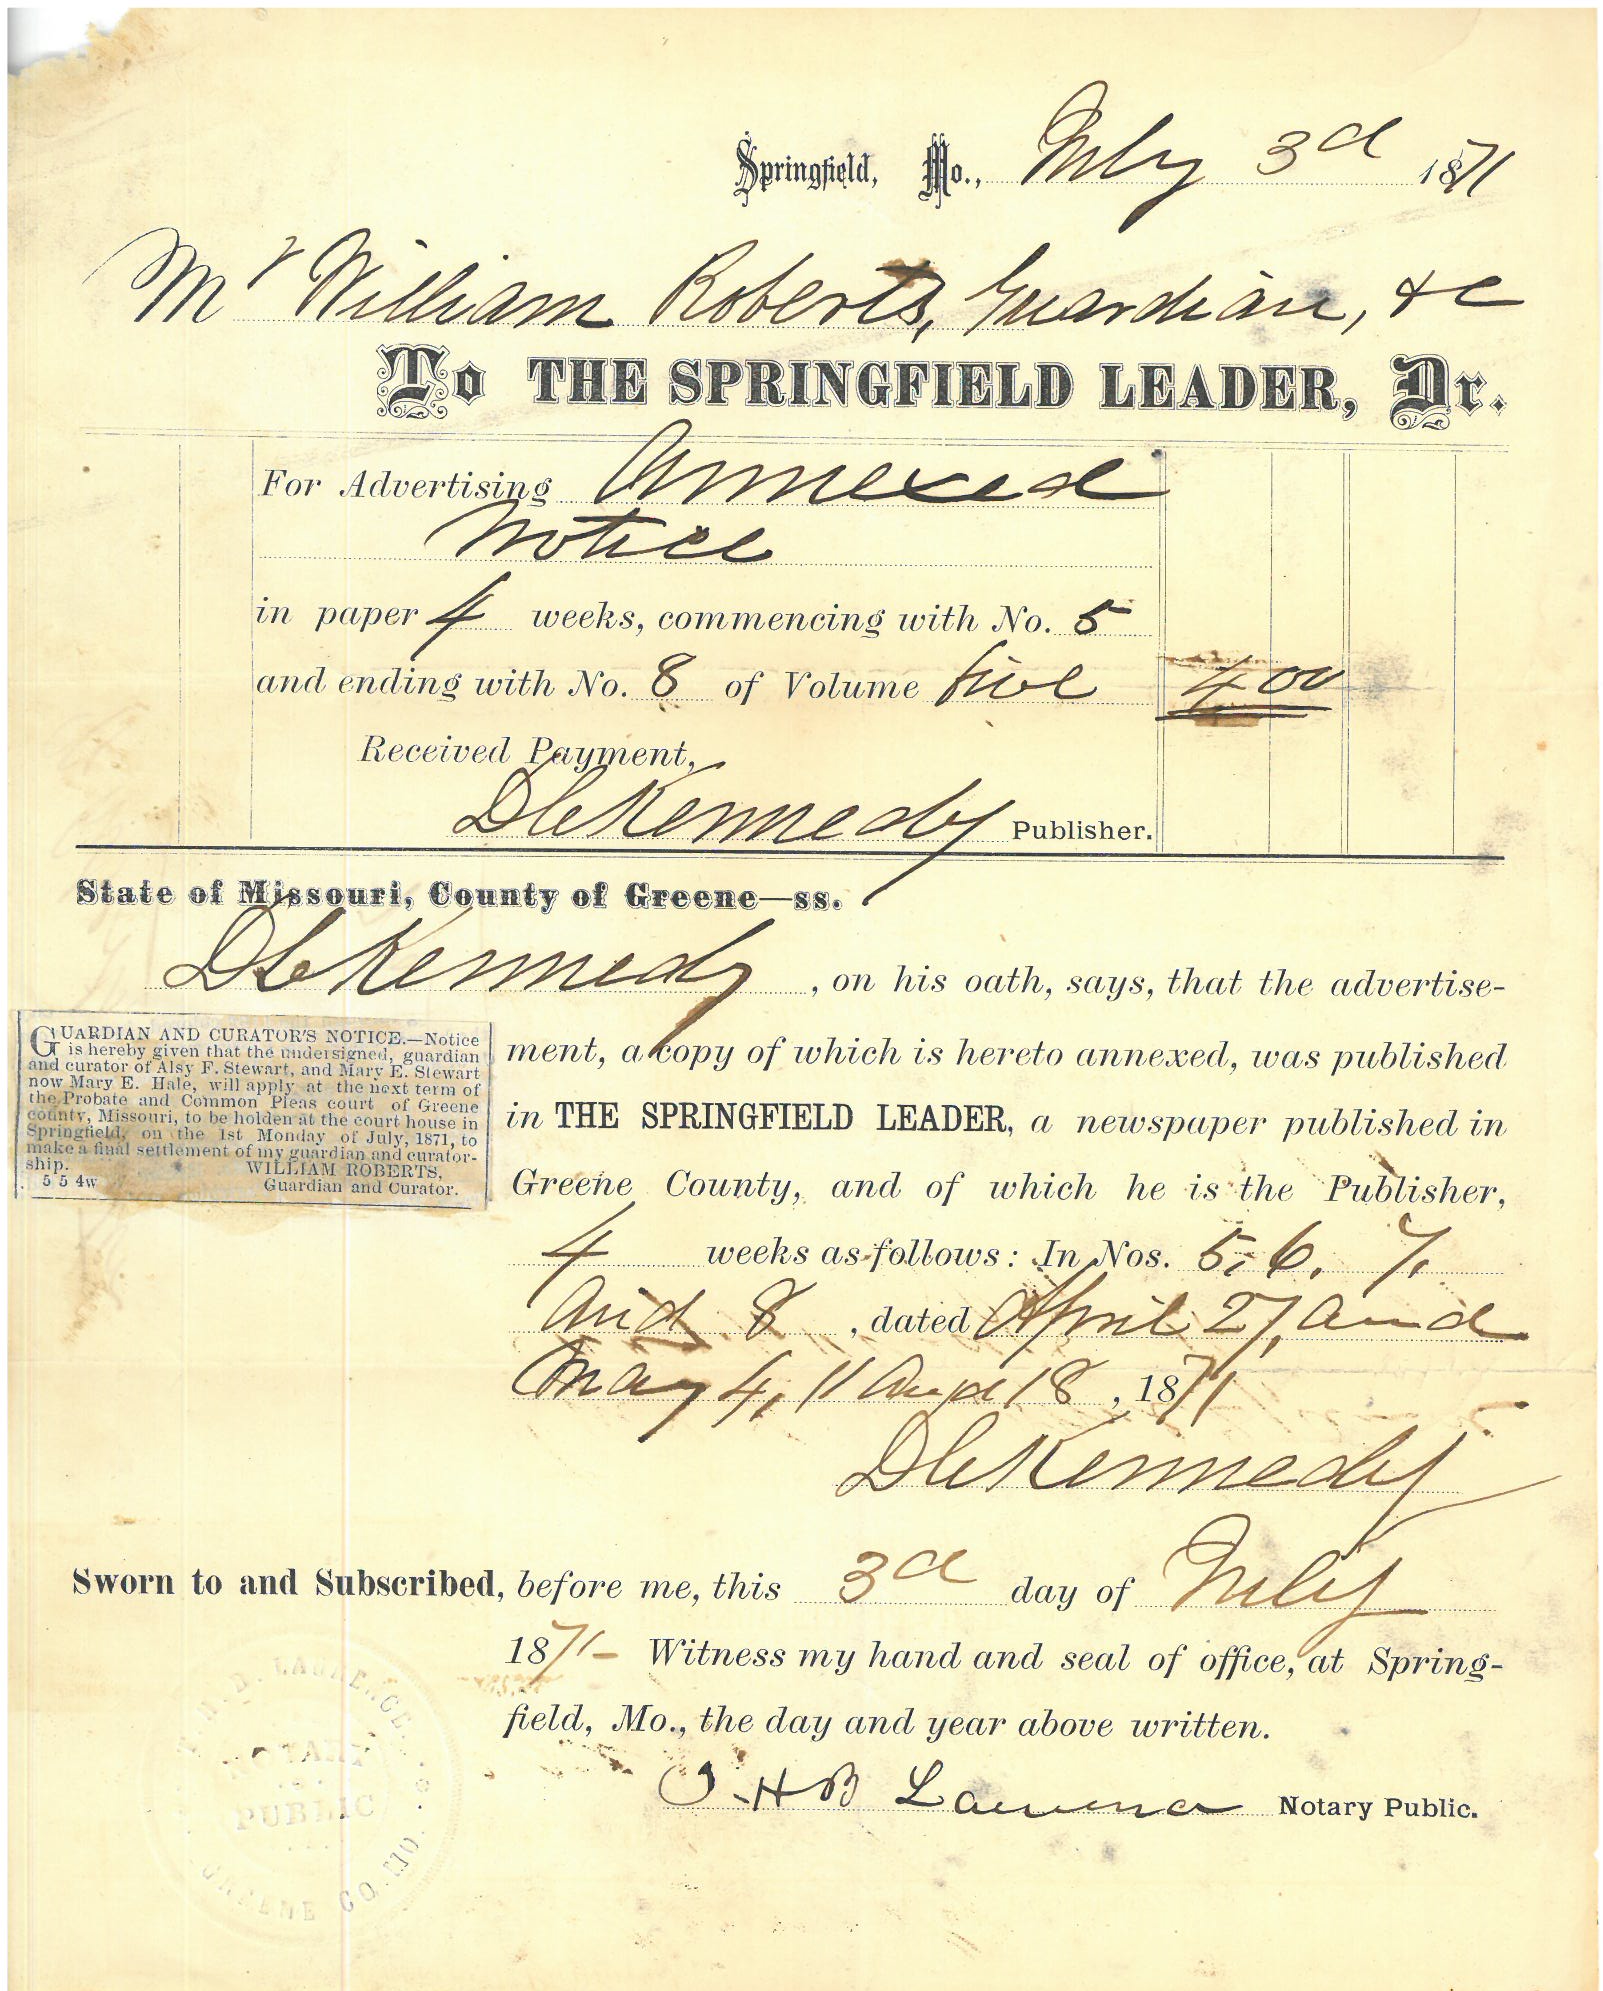 Springfield, Mo., July 3d 1871
Mr William Roberts, Guardian, &c
To THE SPRINGFIELD LEADER, Dr.
For Advertising Annexed
Notice
in paper 4 weeks, commencing with No. 5
and ending with No. 8 of Volume five 4 00
Received Payment,
D C Kennedy Publisher.
State of Missouri, County of Greene—ss.
D C Kennedy, on his oath, says, that the advertise-
ment, a copy of which is hereto annexed, was published
in THE SPRINGFIELD LEADER, a newspaper published in
Greene County, and of which he is the Publisher,
4 weeks as follows: In Nos. 5, 6, 7,
and 8, dated April 27, and
May 4, 11 and 18, 1871
D C Kennedy
GUARDIAN AND CURATOR'S NOTICE.—Notice
is hereby given that the undersigned, guardian
and curator of Alsy F. Stewart, and Mary E. Stewart
now Mary E. Hale, will apply at the next term of
the Probate and Common Pleas court of Greene
county, Missouri, to be holden at the court house in
Springfield, on the 1st Monday of July, 1871, to
make a final settlement of my guardian and curator-
ship. WILLIAM ROBERTS,
5 5 4w Guardian and Curator.
Sworn to and Subscribed, before me, this 3d day of July
1871- Witness my hand and seal of office, at Spring-
field, Mo., the day and year above written.
H B Lawrence Notary Public.
H. B. LAWRENCE.
NOTARY
PUBLIC
GREENE CO. MO.